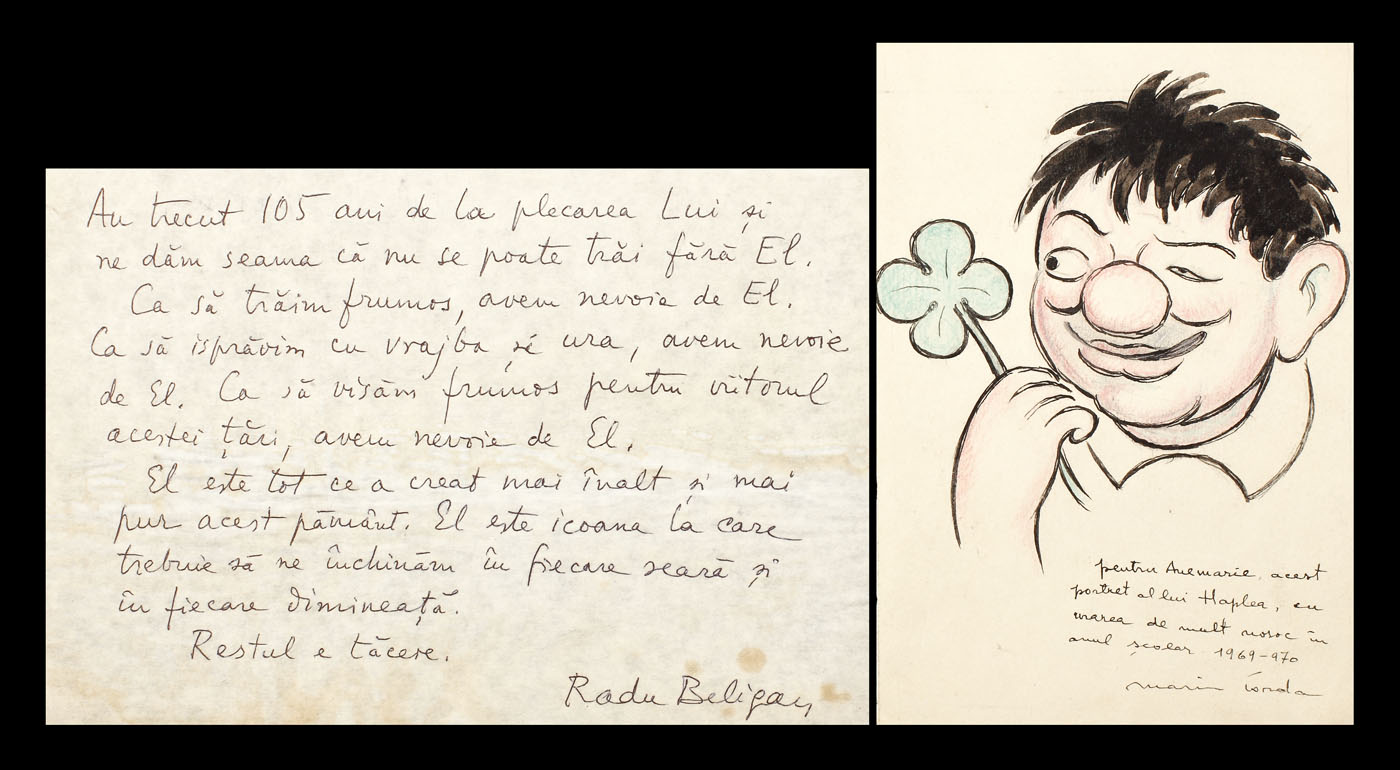 Au trecut 105 ani de la plecarea Lui și
ne dăm seama că nu se poate trăi fără El.
Ca să trăim frumos, avem nevoie de El.
Ca să isprăvim cu vrajba și ura, avem nevoie
de El. Ca să visăm frumos pentru viitorul
acestei țări, avem nevoie de El.
El este tot ce a creat mai înalt și mai
pur acest pământ. El este icoana la care
trebuie să ne închinăm în fiecare seară și
în fiecare dimineață.
Restul e tăcere.
Radu Beligan
pentru Anemarie, acest
portret al lui Haplea, cu
urarea de mult noroc în
anul școlar 1969-970
marin iorda